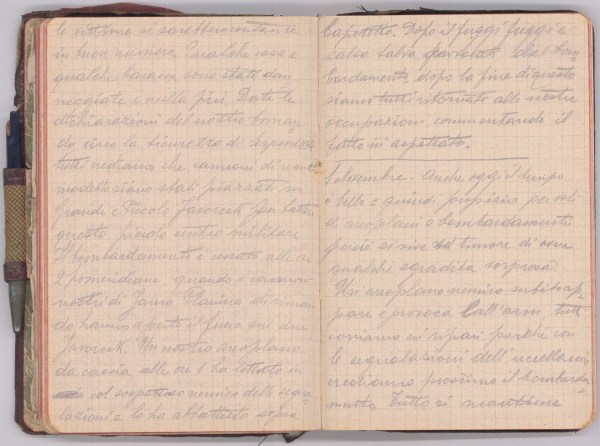 le vittime si sarebbero contate
in buon numero. Qualche casa e
qualche baracca sono state dan
neggiate e nulla più. Date le
dichiarazioni del nostro coman
do circa la sicurezza di
tutti vediamo che cannoni di nuovo
modello siano stati piazzati in
Grande e Piccolo Javorcek per battere
questo piccolo centro militare
Il bombardamento è cessato alle ore
2 pomeridiane quando i cannoni
nostri di Janna Planina
do hanno aperto il fuoco sui due
Javorcek. Un nostro aeroplano
da caccia alle ore 1 ha lottato in
col sorpettoso nemico delle segna
lazioni e lo ha abbattuto sopra
Caporetto. Dopo il fuggi fuggi e
salva salva del bom
bardamento, dopo la fine di questo
siamo tutti ritornati alle nostre
occupazioni commentando il
fatto inaspettato.
1 Novembre. Anche oggi il tempo
è bello e quindi propizio per voli
di aeroplani e bombardamenti
perciò si vive nel timore di avere
qualche sgradita sorpresa.
Un aeroplano nemico subito ap
pare e provoca l'all'arm, tutti
corriamo ai ripari perché con
le segnalazioni dell'uccellaccio
crediamo prossimo il bombarda
mento. Tutto si mantiene